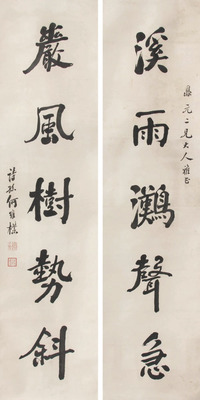 鼎元二兄大人雅正
溪雨灘聲急
巖風樹勢斜
詩孫何維樸